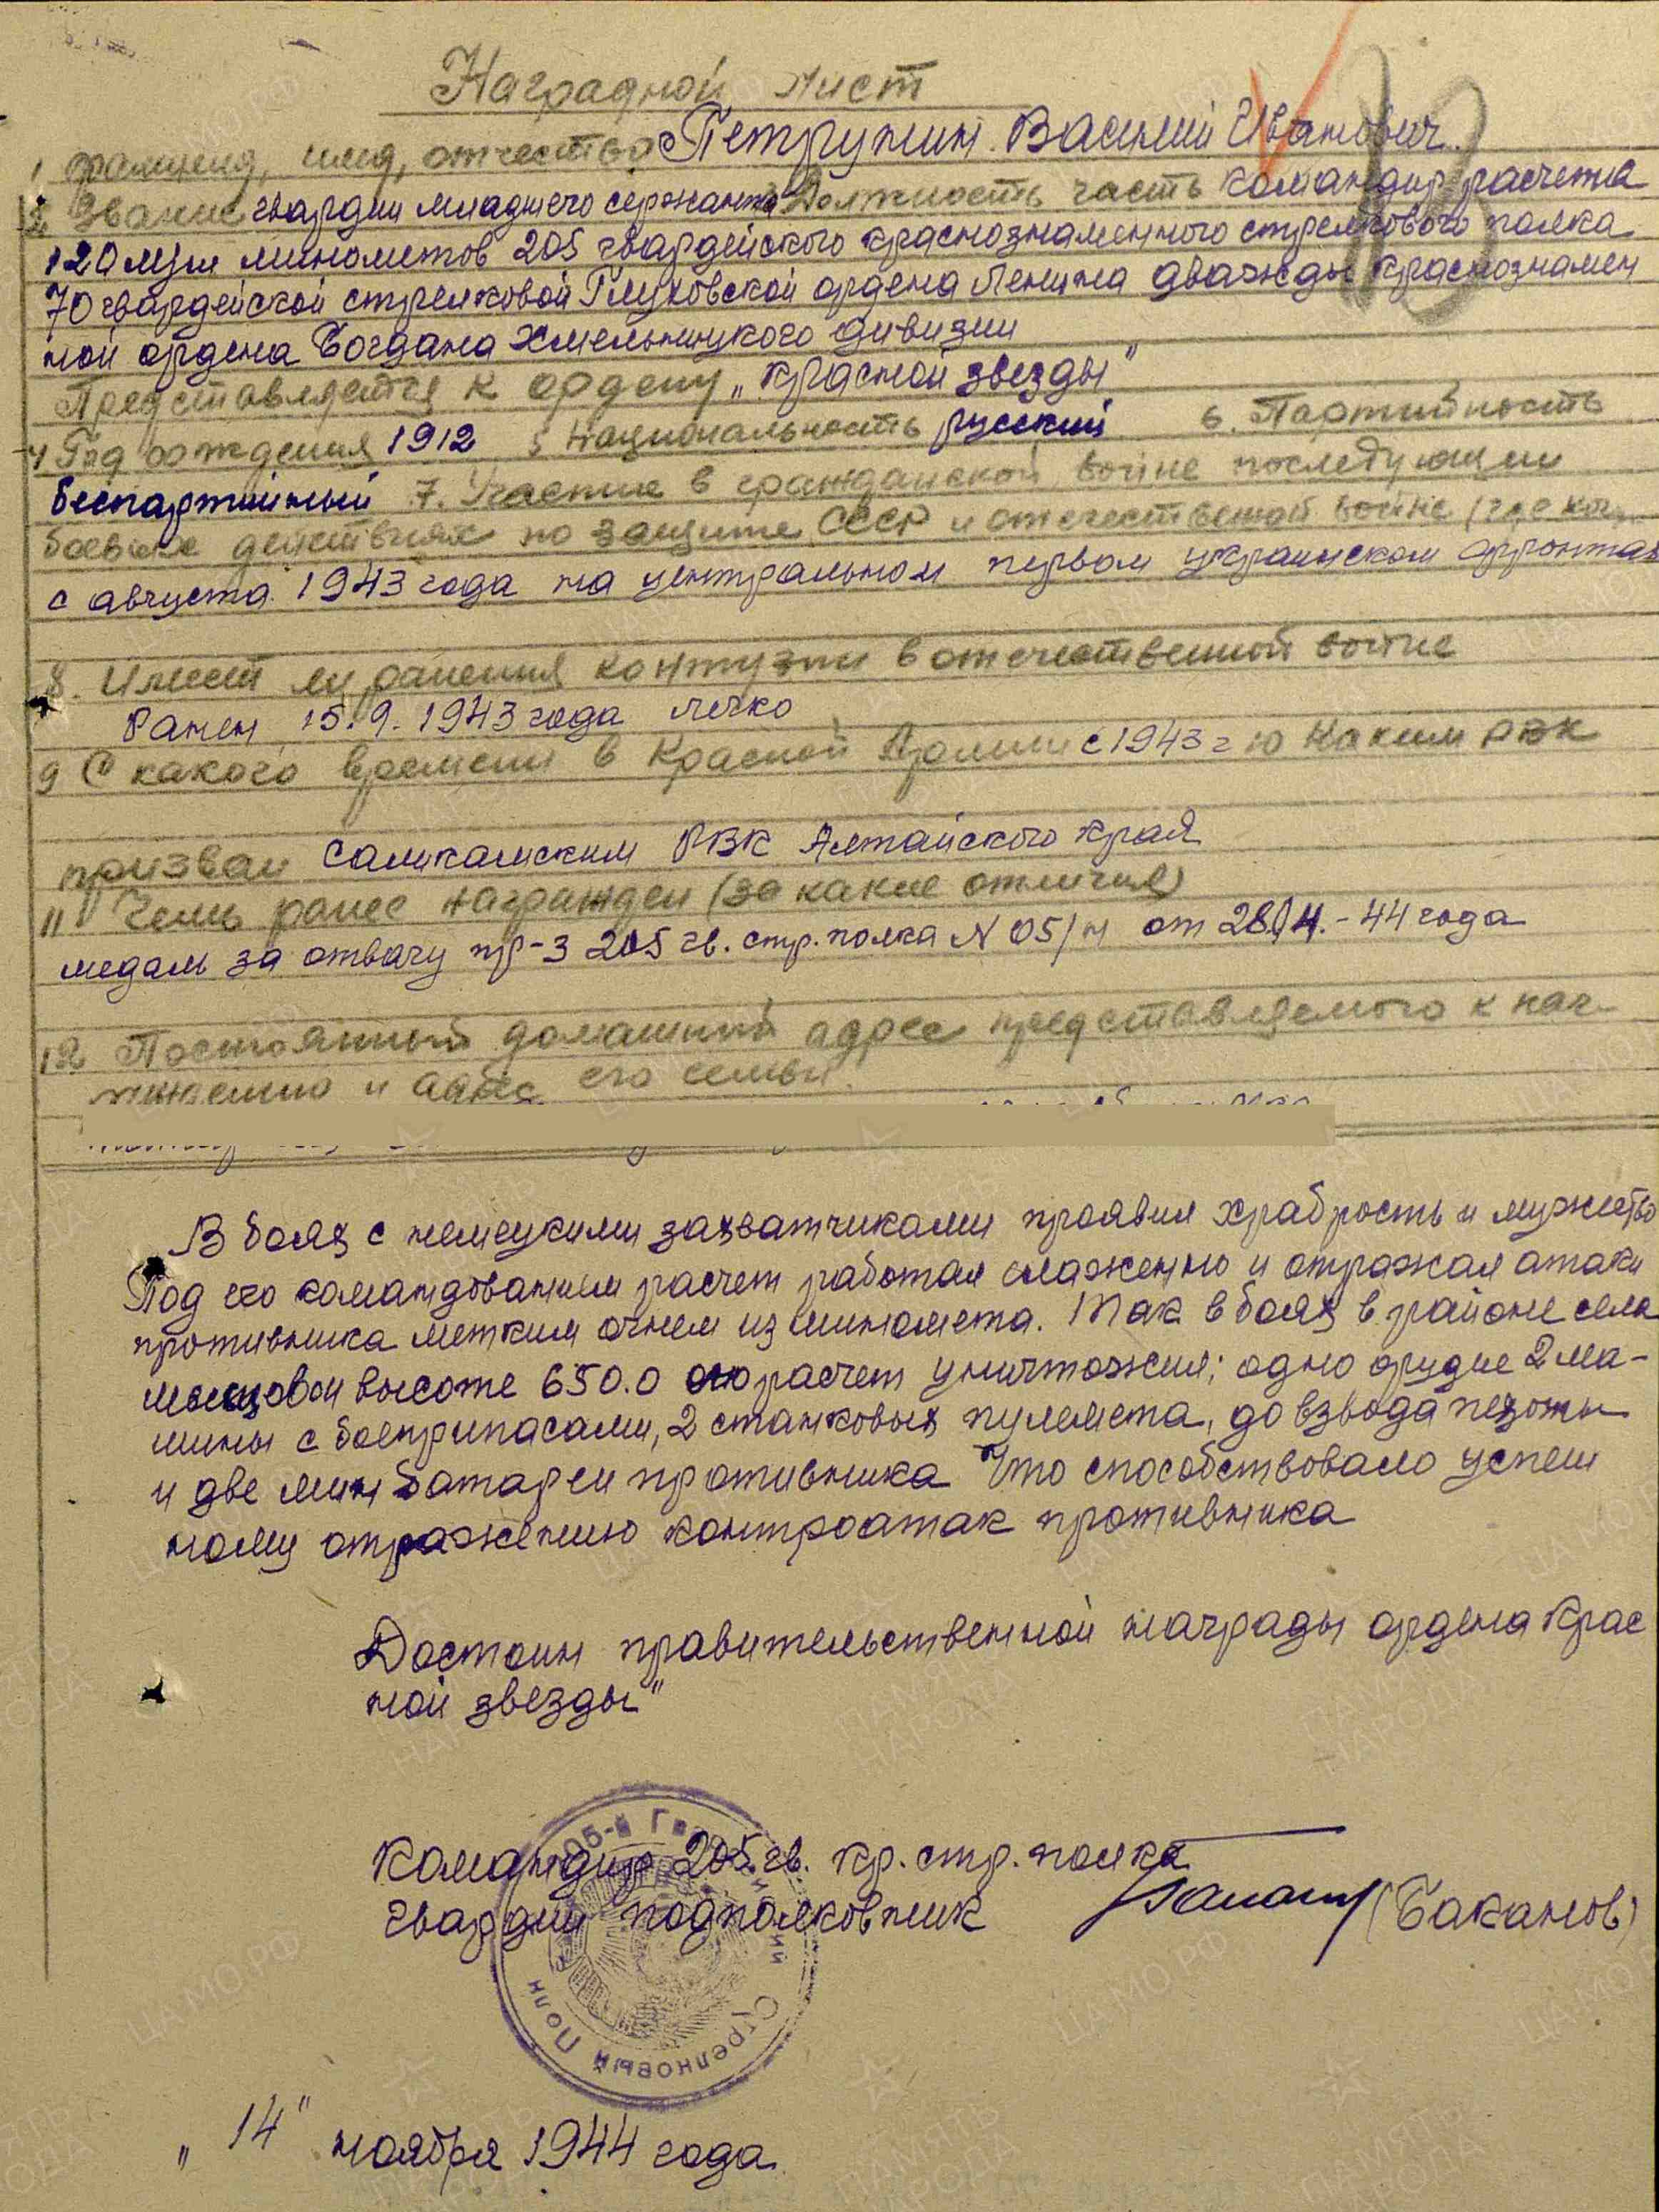 Наградной лист
1 фамилия, имя, отчество Петрунин Василий Иванович.
2 Звание гвардии младшего сержанта Должность часть командир расчета
120 м/м минометов 205 гвардейского краснознаменного стрелкового полка
70 гвардейской стрелковой Глуховской ордена Ленина дважды краснознамен
ной ордена Богдана Хмельницкого дивизии
Представляется к ордену „Красной звезды"
4 Год рождения 1912 5 Национальность русский 6. Партийность
беспартийный 7. Участие в гражданской войне последующих
боевых действиях по защите СССР и отечественной войне (где ког
с августа 1943 года на центральном первом украинском фронтах
8. Имеет ли ранения контузии в отечественной войне
Ранен 15.9.1943 года легко
9 С какого времени в Красной Армии с 1943 г 10 Каким РВК
призван РВК Алтайского края
11 Чем ранее награжден (за какие отличия)
медаль за отвагу пр-з 205 гв. стр. полка N 05/н от 28.4.-44 года
12 Постоянный домашний адрес представляемого к наг-
раждению и адрес его семьи.
В боях с немецкими захватчиками проявил храбрость и мужество
Под его командованием расчет работал слаженно и отражал атаки
противника метким огнем из миномета. Так в боях в районе села
высоте 650.0 его расчет уничтожил; одно орудие 2 ма-
шины с боеприпасами, 2 станковых пулемета, до взвода пехоты
и две мин батареи противника Что способствовало успеш
ному отражению контроатак противника
Достоин правительственной награды ордена Крас
ной звезды"
Командир 205 гв. кр. стр. полка
гвардии подполковник (Баканов)
205-й Стрелковый Полк
„14" ноября 1944 года
ЦАМО.РФ
ПАМЯТЬ НАРОДА